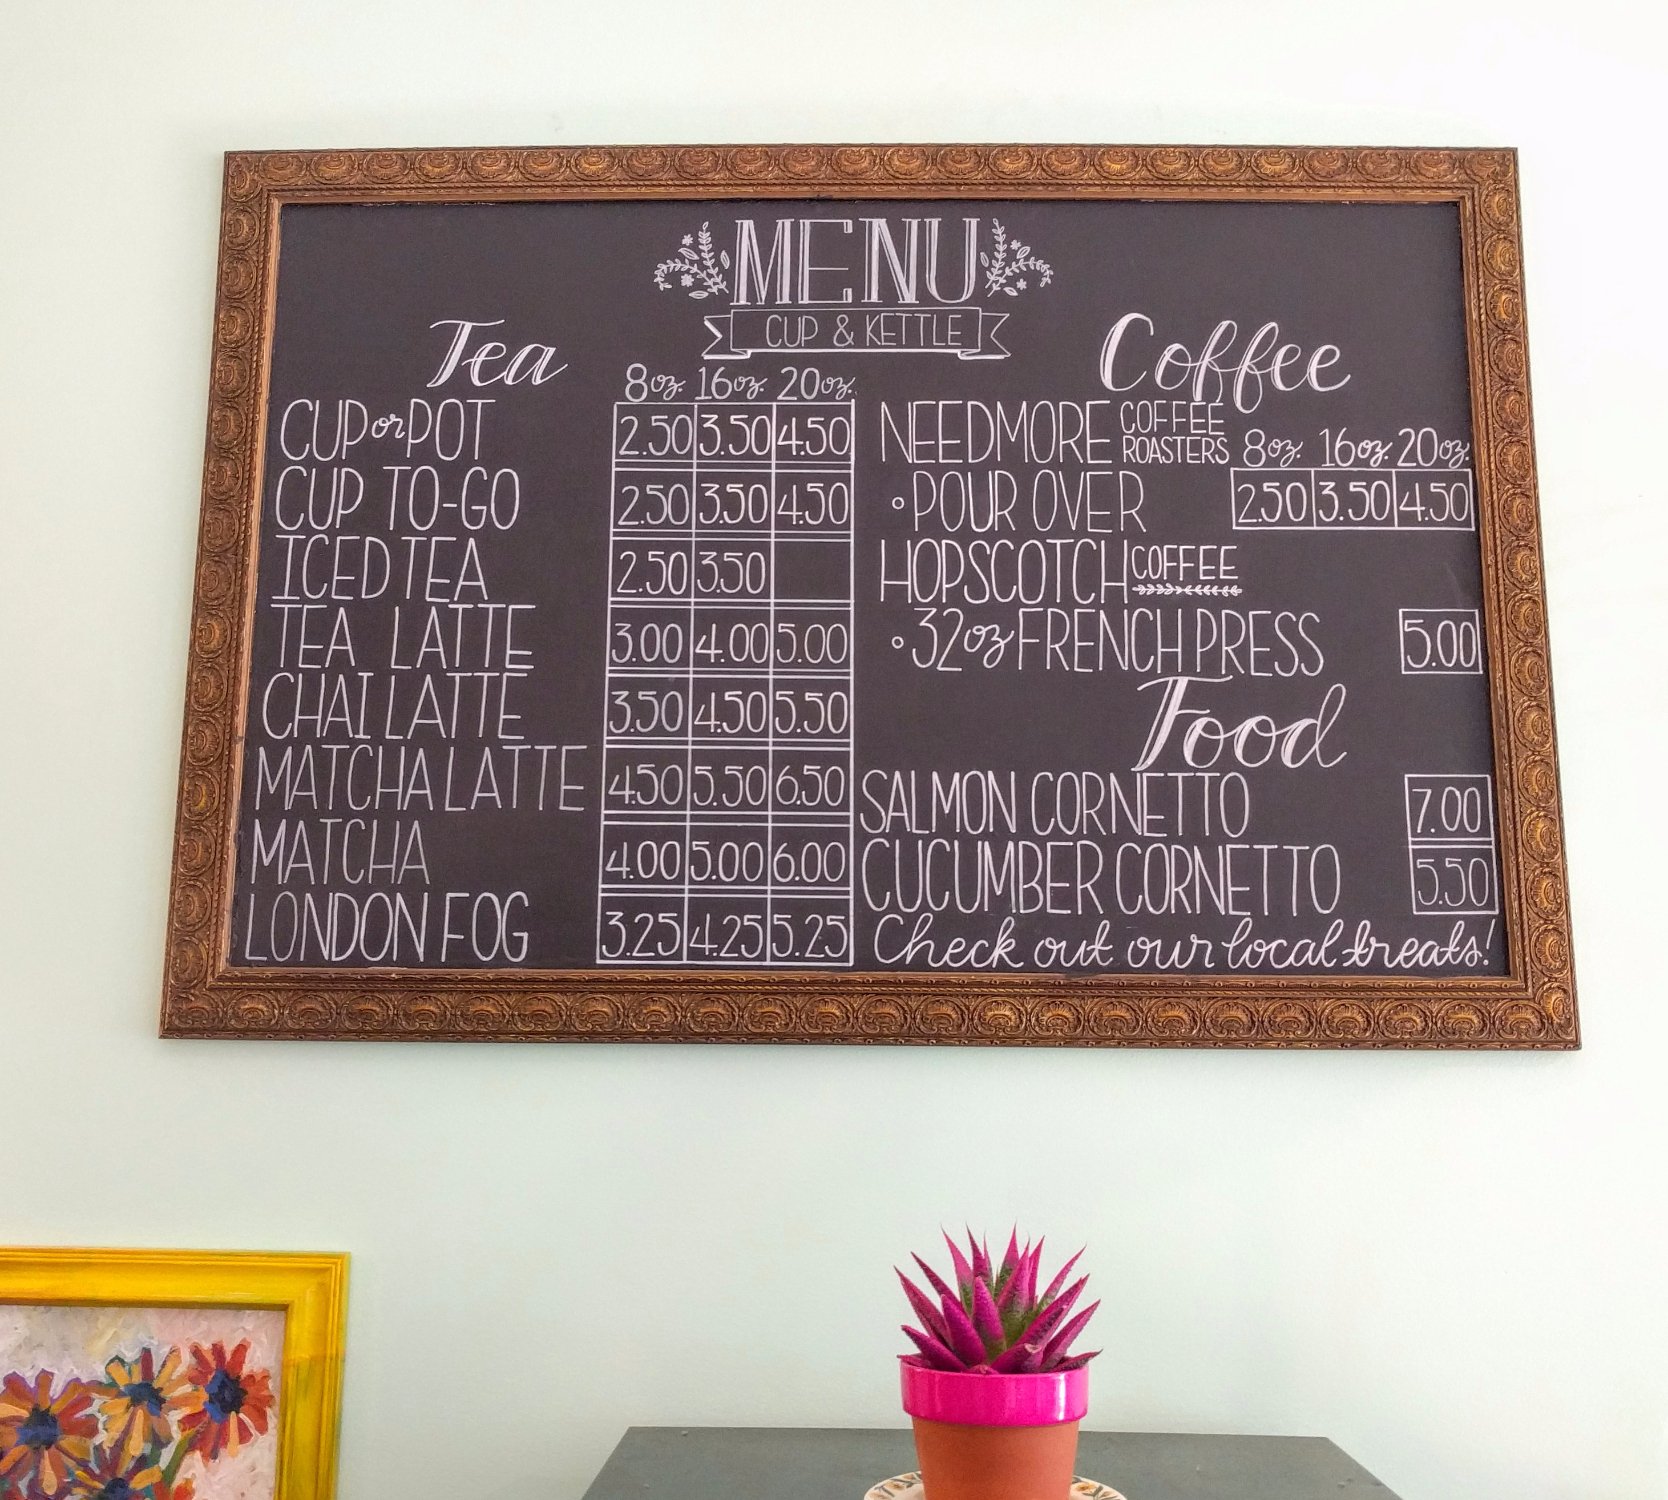 MENU
CUP & KETTLE
Tea
8oz. 16oz. 20oz.
CUP or POT 2.50 3.50 4.50
CUP TO-GO 2.50 3.50 4.50
ICED TEA 2.50 3.50
TEA LATTE 3.00 4.00 5.00
CHAI LATTE 3.50 4.50 5.50
MATCHA LATTE 4.50 5.50 6.50
MATCHA 4.00 5.00 6.00
LONDON FOG 3.25 4.25 5.25
Coffee
NEEDMORE COFFEE ROASTERS 8oz. 16oz. 20oz.
• POUR OVER 2.50 3.50 4.50
HOPSCOTCH COFFEE
• 32oz FRENCH PRESS 5.00
Food
SALMON CORNETTO 7.00
CUCUMBER CORNETTO 5.50
Check out our local treats!